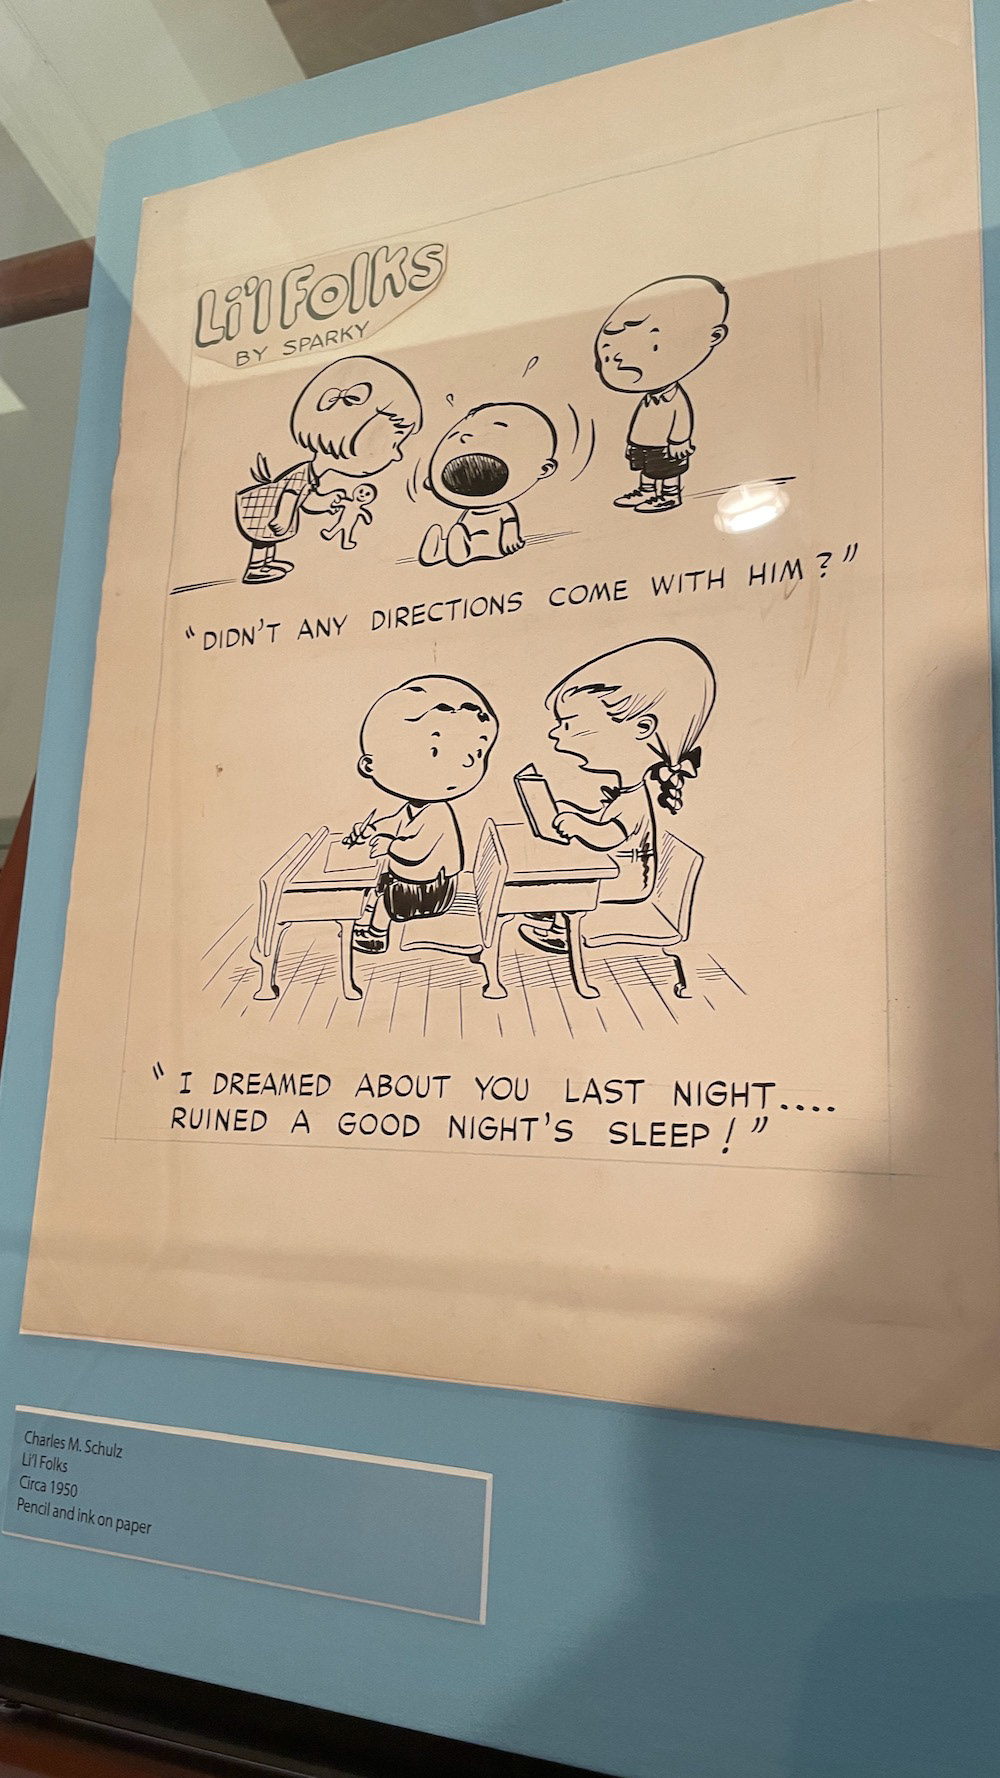 Li'l Folks
BY SPARKY
"DIDN'T ANY DIRECTIONS COME WITH HIM?"
"I DREAMED ABOUT YOU LAST NIGHT....
RUINED A GOOD NIGHT'S SLEEP!"
Charles M. Schulz
Li'l Folks
Circa 1950
Pencil and ink on paper